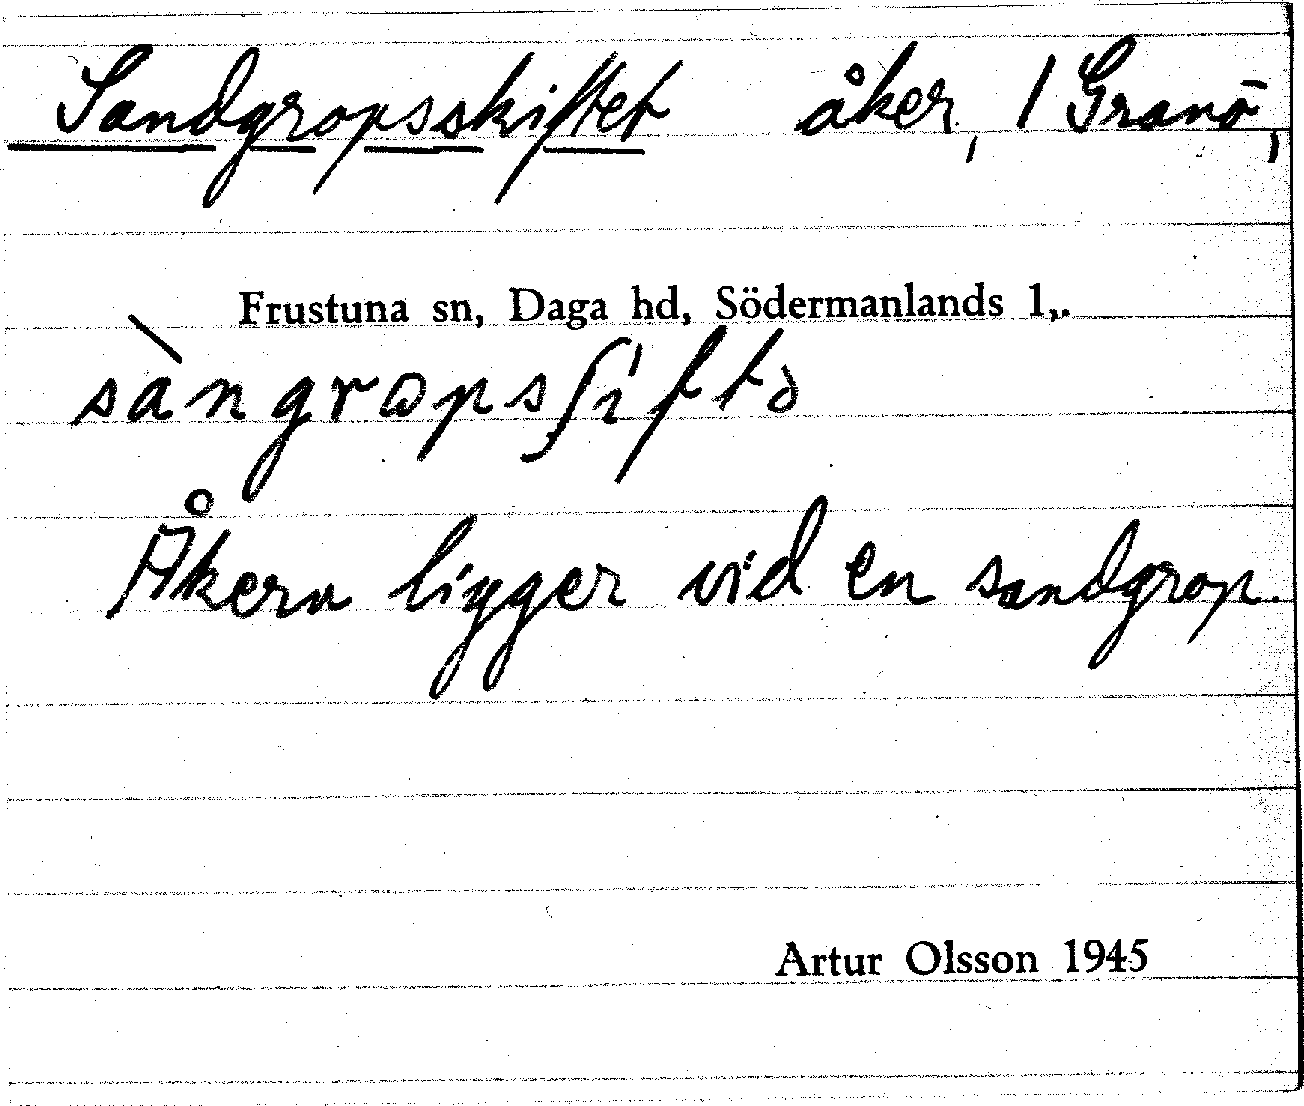 Sandgropsskiftet åker, 1 Granö,
Frustuna sn, Daga hd, Södermanlands l,.
sàngrɷpsʃiftə
Åkern ligger vid en sandgrop.
Artur Olsson 1945